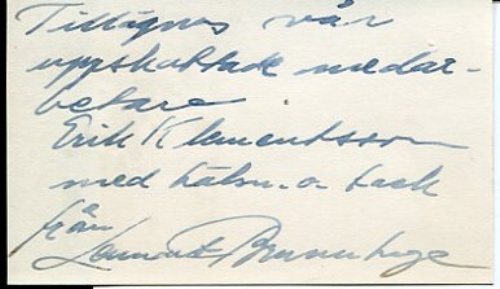 Tillägnas vår
uppskattade medar-
betare
Erik Klementsson
med hälsn. o. tack
från
Lennart Brunnhage